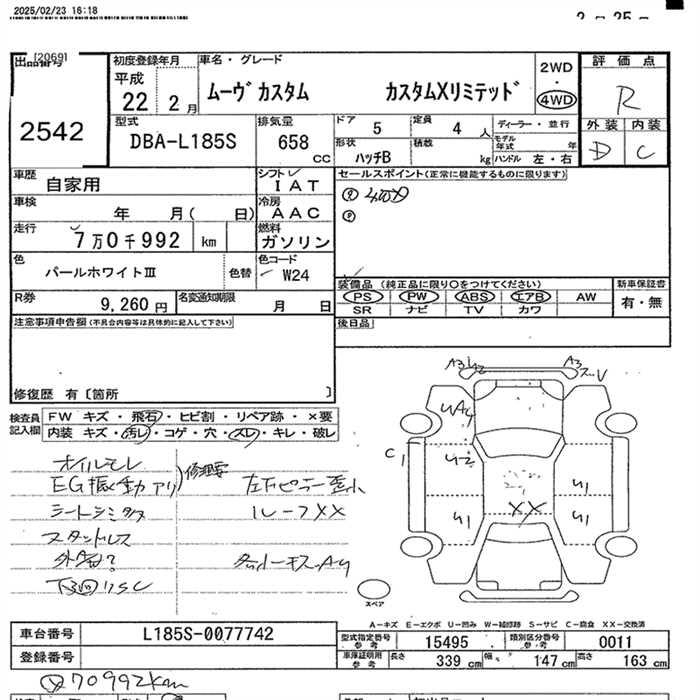 2025/02/23 16:18
出品番号 [2069]
2542
初度登録年月
平成
22 2 月
車名・グレード
ムーヴカスタム カスタムXリミテッド
2WD
・
4WD
評価点
R
外装 内装
D C
型式
DBA-L185S
排気量
658
CC
ドア 5
定員 4 人
形状 ハッチB
積載 kg
ディーラー・並行
モデル年式 年
ハンドル 左・右
車歴 自家用
シフト IAT
車検 年 月( 日)
冷房 AAC
走行 7万0千992 km
燃料 ガソリン
色 パールホワイトIII
色替
色コード W24
R券 9,260 円
名変通知期限 月 日
セールスポイント(正常に機能するものに限ります)
① 4WD
②
装備品(純正品に限り○をつけてください)
PS PW ABS エアB AW
SR ナビ TV カワ
新車保証書
有・無
後日品
注意事項申告欄(不具合内容等は具体的に記入して下さい)
修復歴 有〔箇所 〕
検査員記入欄
FW キズ・飛石・ヒビ割・リペア跡・×要
内装 キズ・汚レ・コゲ・穴・スレ・キレ・破レ
オイルモレ
EG振動アリ
修理要
シートシミ
スタッドレス
左下ピラー歪小
ルーフXX
A3
A3
C1
U2
U1
U1
U1
XX
スペア
A-キズ E-エクボ U-凹み W-補修跡 S-サビ C-腐食 XX-交換済
車台番号 L185S-0077742
登録番号
型式指定番号 参考 15495
類別区分番号 参考 0011
車庫証明用 参考
長さ 339 cm 幅 147 cm 高さ 163 cm
70992km